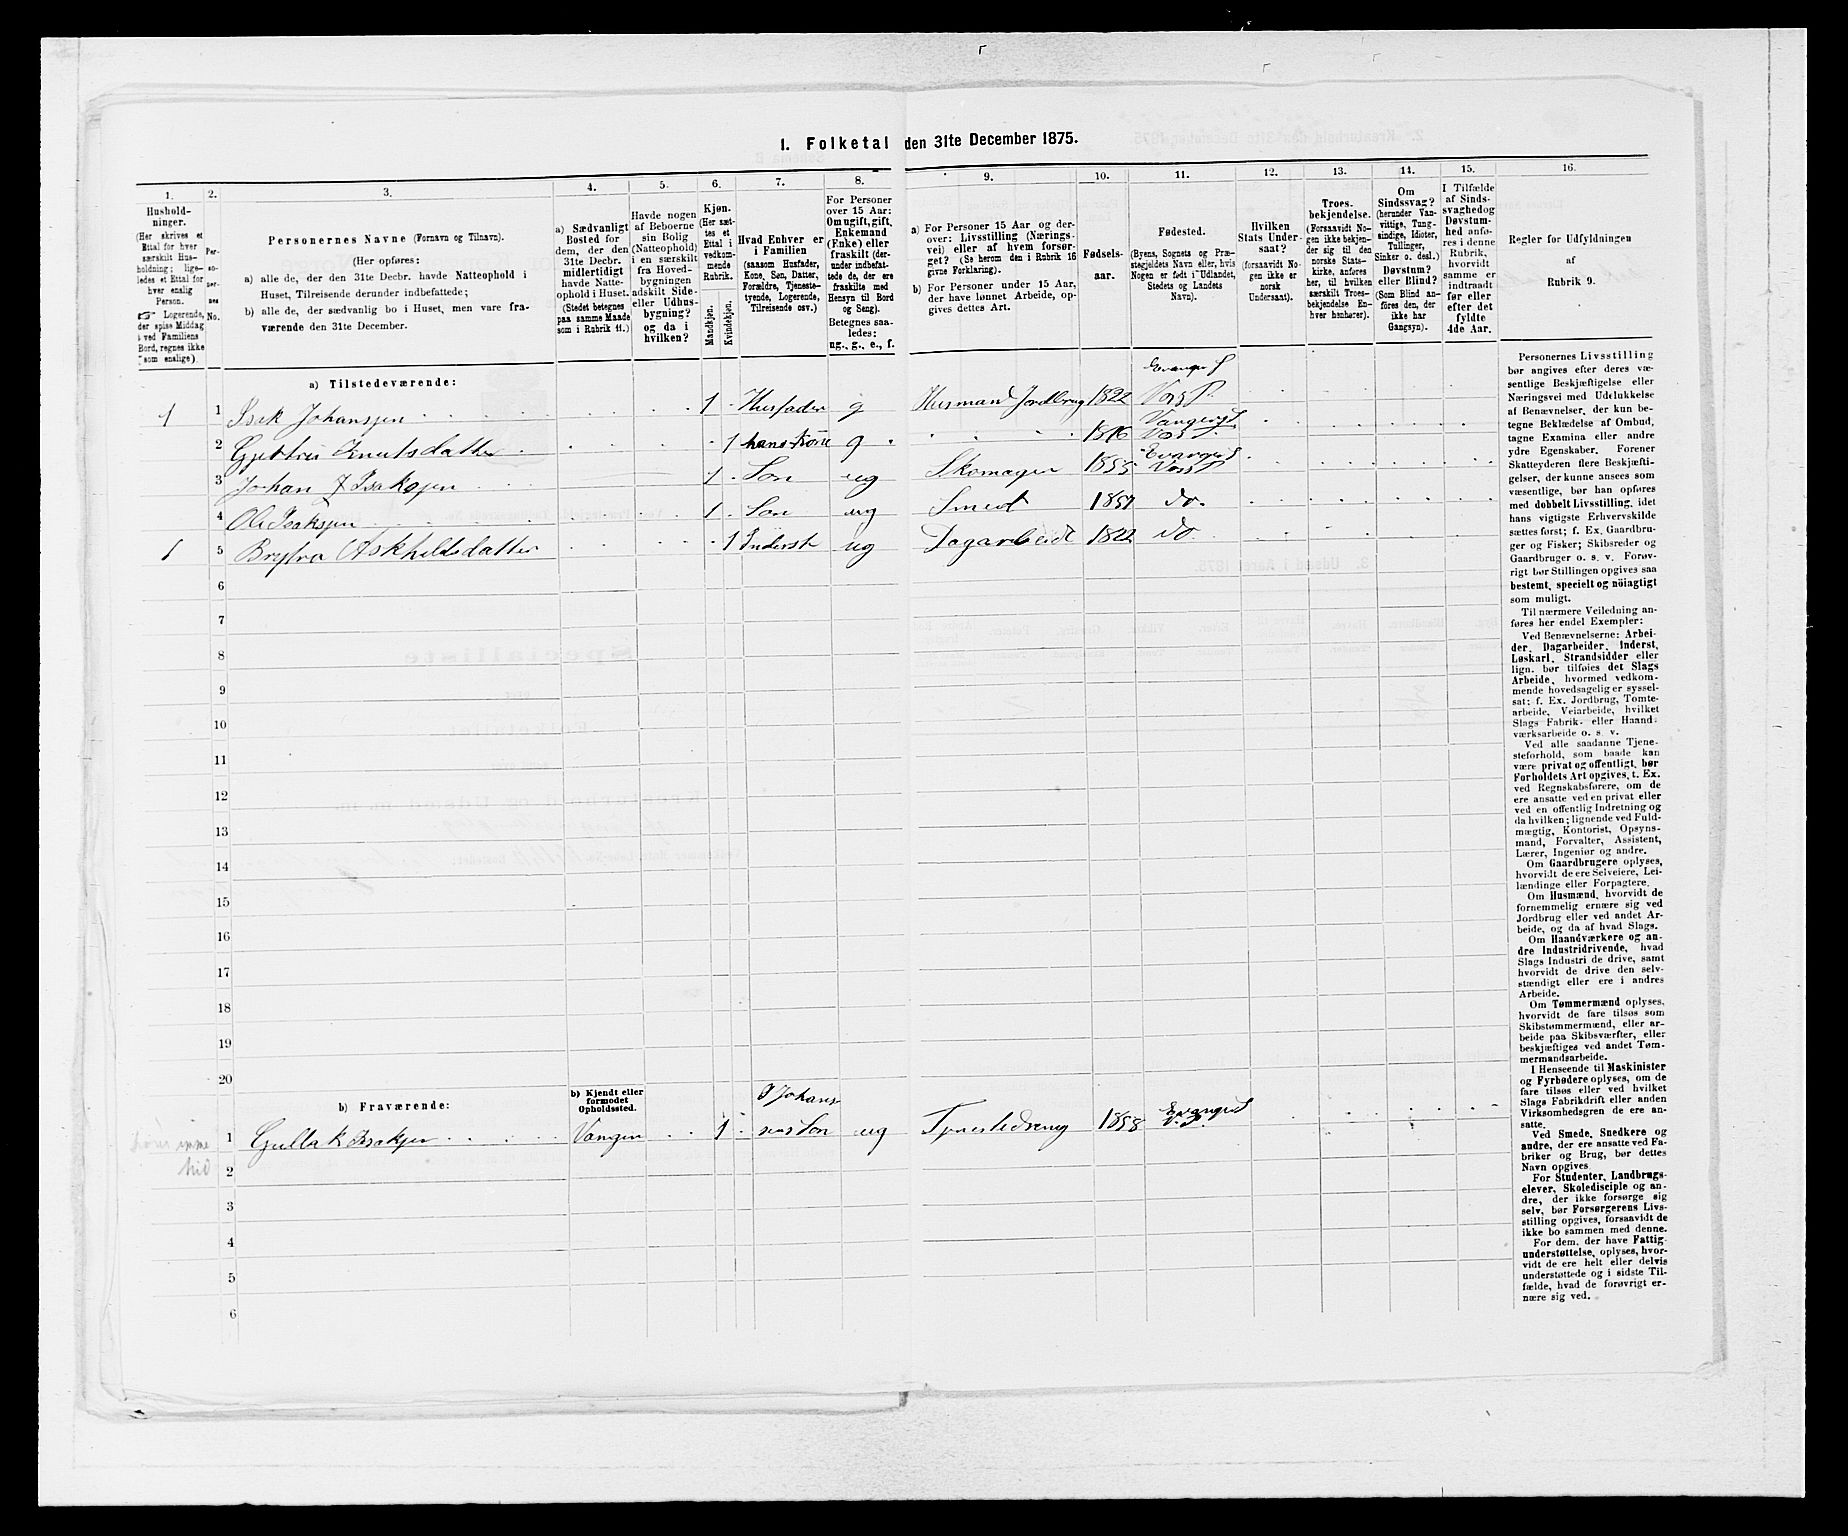 1. Folketal den 31te December 1875.
1.
Hushold-
ninger.
(Her skrives et
Ettal for hver
særskilt Hus-
holdning; lige-
ledes et Ettal for
hver enslig
Person.
☞ Logerende,
der spise Middag
ved Familiens
Bord, regnes ikke
som enslige).
2.
Per-
so-
per-
nes
No.
3.
Personernes Navne (Fornavn og Tilnavn).
(Her opføres:
a) alle de, der den 31te Decbr. havde Natteophold i
Huset, Tilreisende derunder indbefattede;
b) alle de, der sædvanlig bo i Huset, men vare fra-
værende den 31te December.
4.
a) Sædvanligt
Bosted for
dem, der den
31te Decbr.
midlertidigt
havde Natte-
ophold i Huset.
(Stedet betegnes
paa samme Maade
som i Rubrik 11.)
5.
Havde nogen
af Beboerne
sin Bolig
(Natteophold)
i en særskilt
fra Hoved-
bygningen
adskilt Side-
eller Udhus-
bygning?
og da i
hvilken?
6.
Kjøn.
(Her sæt-
tes et
Ettal i
vedkom-
mende
Rubrik.
Mandkjøn.
Kvindekjøn.
7.
Hvad Enhver er
i Familien
(saasom Husfader,
Kone, Søn, Datter,
Forældre, Tjeneste-
tyende, Logerende,
Tilreisende osv.)
8.
For Personer
over 15 Aar:
Om ugift, gift,
Enkemand
(Enke) eller
fraskilt (der-
under indbefat-
tede de, der ere
fraskilte med
Hensyn til Bord
og Seng).
Betegnes saa-
ledes:
ug., g., e., f.
9.
a) For Personer 15 Aar og der-
over: Livsstilling (Nærings-
vei) eller af hvem forsør-
get? (Se herom den i Rubrik 16
givne Forklaring).
b) For Personer under 15 Aar,
der have lønnet Arbeide, op-
gives dettes Art.
10.
Fødsels-
aar.
11.
Fødested.
(Byens, Sognets og Præ-
stegjeldets Navn eller, hvis
Nogen er født i Udlandet,
Stedets og Landets
Navn).
12.
Hvilken
Stats Under-
saat?
(forsaavidt No-
gen ikke er
norsk
Undersaat).
13.
Troes-
bekjendelse.
(Forsaavidt No-
gen ikke bekjen-
der sig til den
norske Stats-
kirke, anføres
her, til hvilken
særskilt Troes-
bekjendelse En-
hver henhører).
14.
Om
Sindssvag?
(herunder Van-
vittige, Tung-
sindige, Idioter,
Tullinger,
Sinker o. desl.)
Døvstum?
eller Blind?
(Som Blind an-
føres den, der
ikke har
Gangsyn).
15.
I Tilfælde
af Sinds-
svaghed og
Døvstum-
hed anfø-
res i denne
Rubrik,
hvorvidt
samme er
indtraadt
før eller
efter det
fyldte
4de Aar.
16.
Regler for Udfyldningen
af
Rubrik 9.
a) Tilstedeværende:
1 1 Isak Johansjen 1 Husfader g Husmand Jordbrug 1822 Evanger S Vors P.
2 Gjertrui Knutsdatter 1 hans Kone g 1816 Vangens S Vors P.
3 Johan J Isaksjen 1 Søn ug Skomager 1855 Evanger S Vors P
4 Ole Isaksjen 1 Søn ug Smed 1857 do.
1 5 Brytva Askhildsdatter 1 Inderst ug Dagarbeide 1822 do
6
7
8
9
10
11
12
13
14
15
16
17
18
19
20
b) Fraværende:
b) Kjendt eller
formodet
Opholdssted.
1 Gullak Isaksjen Vangen 1 I Johans
sens Søn ug Tjenestedreng 1858 Evanger S V. P.
hid
2
3
4
5
6
Personernes Livsstilling
bør angives efter deres væ-
sentlige Beskjæftigelse eller
Næringsvei med Udelukkelse
af Benævnelser, der kun be-
tegne Beklædelse af Ombud,
tagne Examina eller andre
ydre Egenskaber. Forener
Skatteyderen flere Beskjæfti-
gelser, der kunne ansees som
væsentlige, bør han opføres
med dobbelt Livsstilling, idet
hans vigtigste Erhvervskilde
sættes først; f. Ex. Gaardbru-
ger og Fisker; Skibsreder og
Gaardbruger o. s. v. Forøv-
rigt bør Stillingen opgives saa
bestemt, specielt og nöiagtigt
som muligt.
Til nærmere Veiledning an-
føres her endel Exempler:
Ved Benævnelserne: Arbei-
der, Dagarbeider, Inderst,
Løskarl, Strandsidder eller
lign. bør tilføies det Slags
Arbeide, hvormed vedkom-
mende hovedsagelig er syssel-
sat; f. Ex. Jordbrug, Tomte-
arbeide, Veiarbeide, hvilket
Slags Fabrik- eller Haand-
værksarbeide o. s. v.
Ved alle saadanne Tjene-
steforhold, som baade kan
være privat og offentligt, bør
Forholdets Art opgives, t. Ex.
ved Regnskabsførere, om de
ere ansatte ved en privat eller
ved en offentlig Indretning og
da hvilken; lignende ved Fuld-
mægtig, Kontorist, Opsyns-
mand, Forvalter, Assistent,
Lærer, Ingeniør og andre.
Om Gaardbrugere oplyses,
hvorvidt de ere Selveiere, Lei-
lændinge eller Forpagtere.
Om Husmænd, hvorvidt de
fornemmelig ernære sig ved
Jordbrug eller ved andet Ar-
beide, og da af hvad Slags.
Om Haandværkere og an-
dre Industridrivende, hvad
Slags Industri de drive, samt
hvorvidt de drive den selv-
stændigt eller ere i andres
Arbeide.
Om Tømmermænd oplyses,
hvorvidt de fare tilsøs som
Skibstømmermænd, eller ar-
beide paa Skibsværfter, eller
beskjæftiges ved andet Tøm-
mermandsarbeide.
I Henseende til Maskinister
og Fyrbødere oplyses, om de
fare tilsøs eller ved hvilket
Slags Fabrikdrift eller anden
Virksomhedsgren de ere an-
satte.
Ved Smede, Snedkere og
andre, der ere ansatte ved Fa-
briker og Brug, bør dettes
Navn opgives.
For Studenter, Landbrugs-
elever, Skoledisciple og an-
dre, der ikke forsørge sig
selv, bør Forsørgerens Livs-
stilling opgives, forsaavidt de
ikke bo sammen med denne.
For dem, der have Fattig-
understøttelse, oplyses, hvor-
vidt de ere helt eller delvis
understøttede og i sidste Til-
fælde, hvad de forøvrigt er-
nære sig ved.